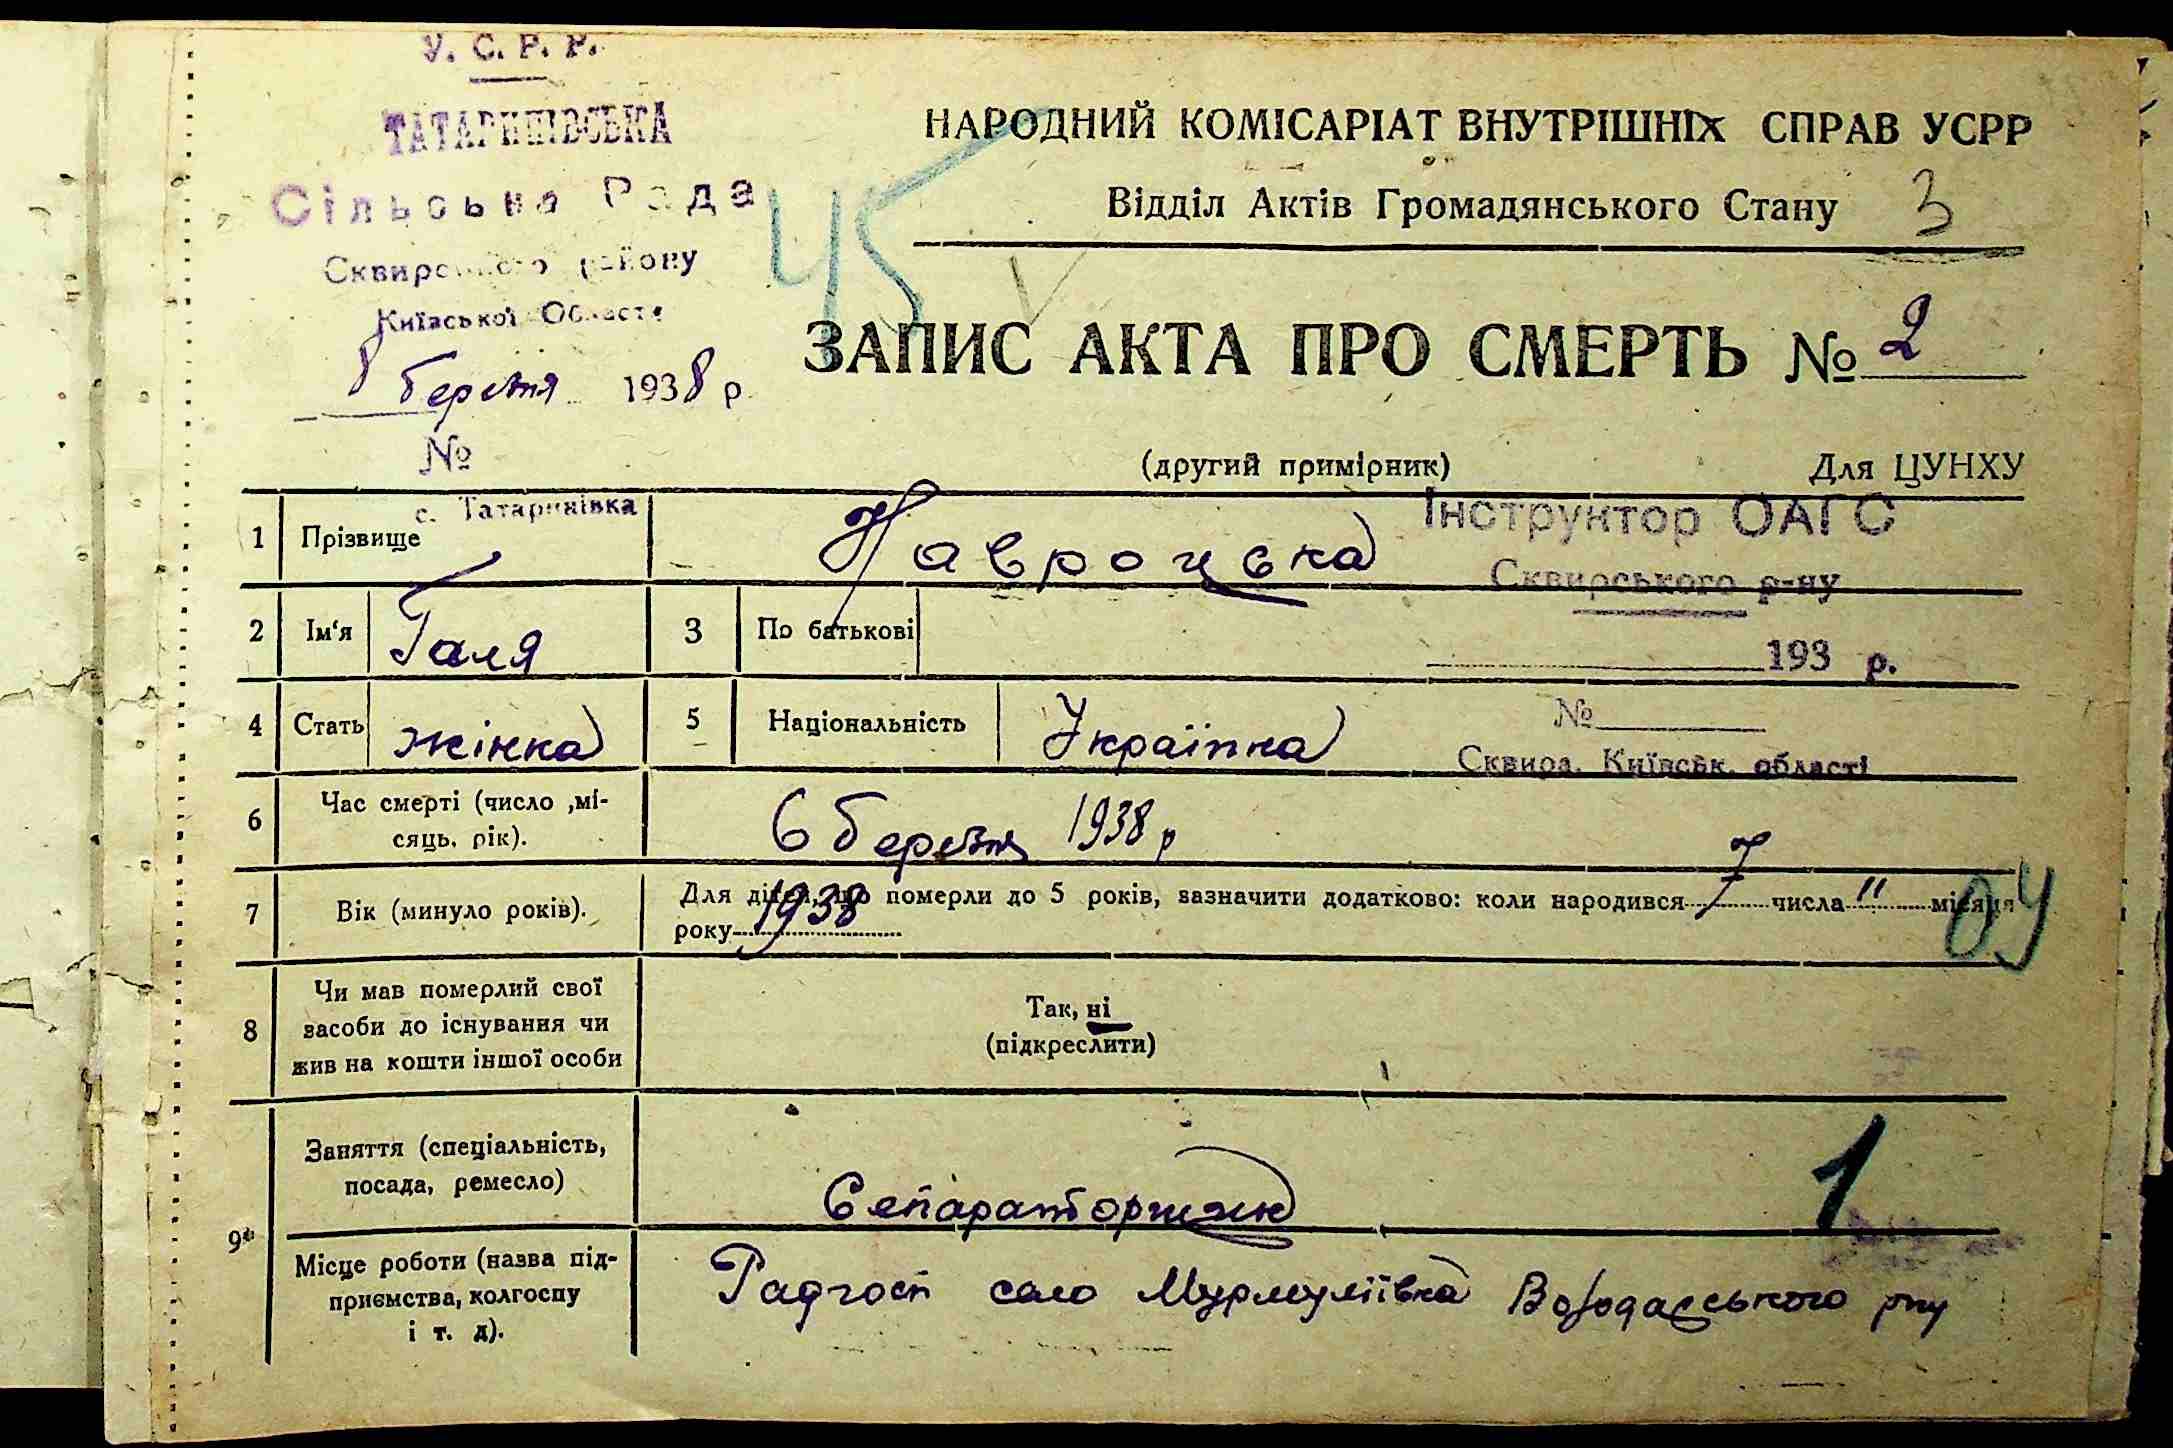 У. С. Р. Р.
ТАТАРИНІВСЬКА
Сільська Рада
Сквирського району
Київської Области
8 березня 1938 р.
№
с. Татаринівка
45
НАРОДНИЙ КОМІСАРІАТ ВНУТРІШНІХ СПРАВ УСРР
Відділ Актів Громадянського Стану 3
ЗАПИС АКТА ПРО СМЕРТЬ № 2
(другий примірник) Для ЦУНХУ
Інструктор ОАГС
Сквирського р-ну
193 р.
№
Сквира, Київськ. області
1 Прізвище Навроцька
2 Ім'я Галя 3 По батькові
4 Стать жінка 5 Національність Українка
6 Час смерті (число ,мі-
сяць, рік). 6 березня 1938 р
7 Вік (минуло років). Для дітей, що померли до 5 років, зазначити додатково: коли народився 7 числа II місяця
року 1938
04
8 Чи мав померлий свої
засоби до існування чи
жив на кошти іншої особи
Так, ні
(підкреслити)
9* Заняття (спеціальність,
посада, ремесло)
1
Місце роботи (назва під-
приємства, колгоспу
і т. д).
Радгосп село Володарського рну